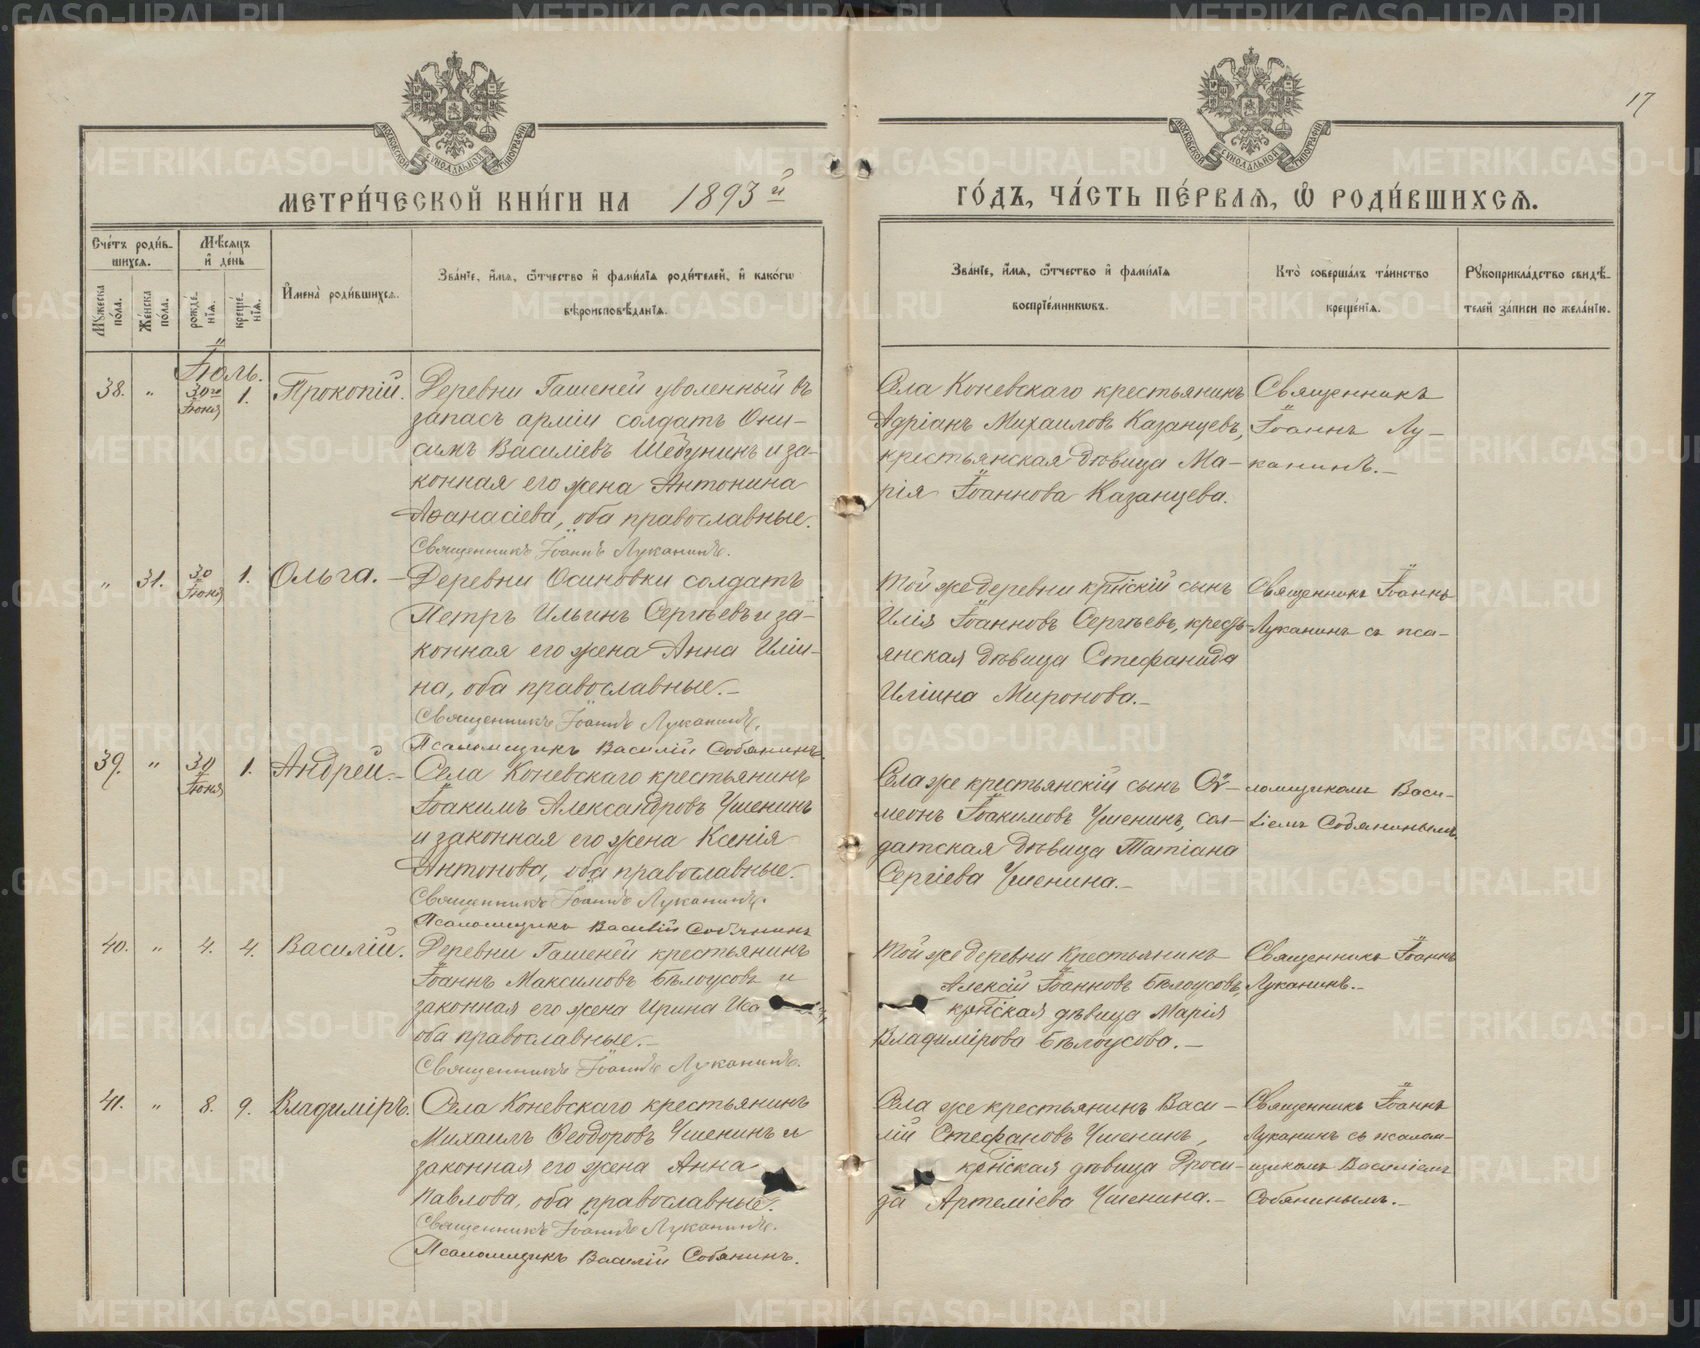 17
МЕТРИ́ЧЕСКОЙ КНИ́ГИ НА 1893й
ГО́ДЪ, ЧА́СТЬ ПЕ́РВАѦ, Ѡ҆ РОДИ́ВШИХСѦ.
Сче́тъ роди́в-
шихсѧ.
Мꙋжеска пола.
Же́нска пола.
Мѣ́сѧцъ
и҆ де́нь
рожде́-
нїѧ.
креще́-
нїѧ.
И҆мена̀ роди́вшихсѧ.
Зва́нїе, и҆́мѧ, ѻ҆́тчество и҆ фами́лїѧ роди́телей, и҆ како́гѡ
вѣроисповѣ́данїѧ.
Зва́нїе, и҆́мѧ, ѻ҆́тчество и҆ фами́лїѧ
воспрїе́мникѡвъ.
Кто̀ соверша́лъ та́инство
креще́нїѧ.
Рꙋкоприкла́дство свидѣ́-
телей за́писи по жела́нїю.
Іюль.
38. " 30го Іюня 1. Прокопій.
Деревни Гашеней уволенный въ
запасъ арміи солдатъ Они-
симъ Василіевъ Шебунинъ и за-
конная его жена Антонина
Аѳанасіева, оба православные.
Священникъ Іоаннъ Луканинъ.
Села Коневскаго крестьянинъ
Адріанъ Михаиловъ Казанцевъ,
крестьянская дѣвица Ма-
рія Іоаннова Казанцева.
Священникъ
Іоаннъ Лу-
канинъ.-
" 31. 30 Іюня 1. Ольга. -
Деревни Осиновки солдатъ
Петръ Ильинъ Сергѣевъ и за-
конная его жена Анна Иліи-
на, оба православные.-
Священникъ Іоаннъ Луканинъ.
Псаломщикъ Василій Собянинъ
Той же деревни крнскій сынъ
Илія Іоанновъ Сергѣевъ, кресть-
янская дѣвица Стефанида
Иліина Миронова.-
Священникъ Іоаннъ
Луканинъ съ пса-
39. " 30 Іюня 1. Андрей.-
Села Коневскаго крестьянинъ
Іоакимъ Александровъ Ушенинъ
и законная его жена Ксенія
Антонова, оба православные.
Священникъ Іоаннъ Луканинъ.
Псаломщикъ Василій Собянинъ
Села же крестьянскій сынъ Си-
меонъ Іоакимовъ Ушенинъ, сол-
датская дѣвица Татіана
Сергіева Ушенина.-
ломщикомъ Васи-
ліемъ Собянинымъ
40. " 4. 4. Василій.
Деревни Гашеней крестьянинъ
Іоаннъ Максимовъ Бѣлоусовъ и
законная его жена Ирина
оба православные.-
Священникъ Іоаннъ Луканинъ.
Той же деревни крестьянинъ
Алексій Іоанновъ Бѣлоусовъ,
крнская дѣвица Марія
Владимірова Бѣлоусова. -
Священникъ Іоаннъ
Луканинъ.-
41. " 8. 9. Владиміръ.
Села Коневскаго крестьянинъ
Михаилъ Ѳеодоровъ Ушенинъ и
законная его жена Анна
Павлова, оба православные.
Священникъ Іоаннъ Луканинъ.
Псаломщикъ Василій Собянинъ.
Села же крестьянинъ Васи-
лій Стефановъ Ушенинъ,
крнская дѣвица Дроси-
да Артеміева Ушенина.-
Священникъ Іоаннъ
Луканинъ съ псалом-
щикомъ Василіемъ
Собянинымъ.-